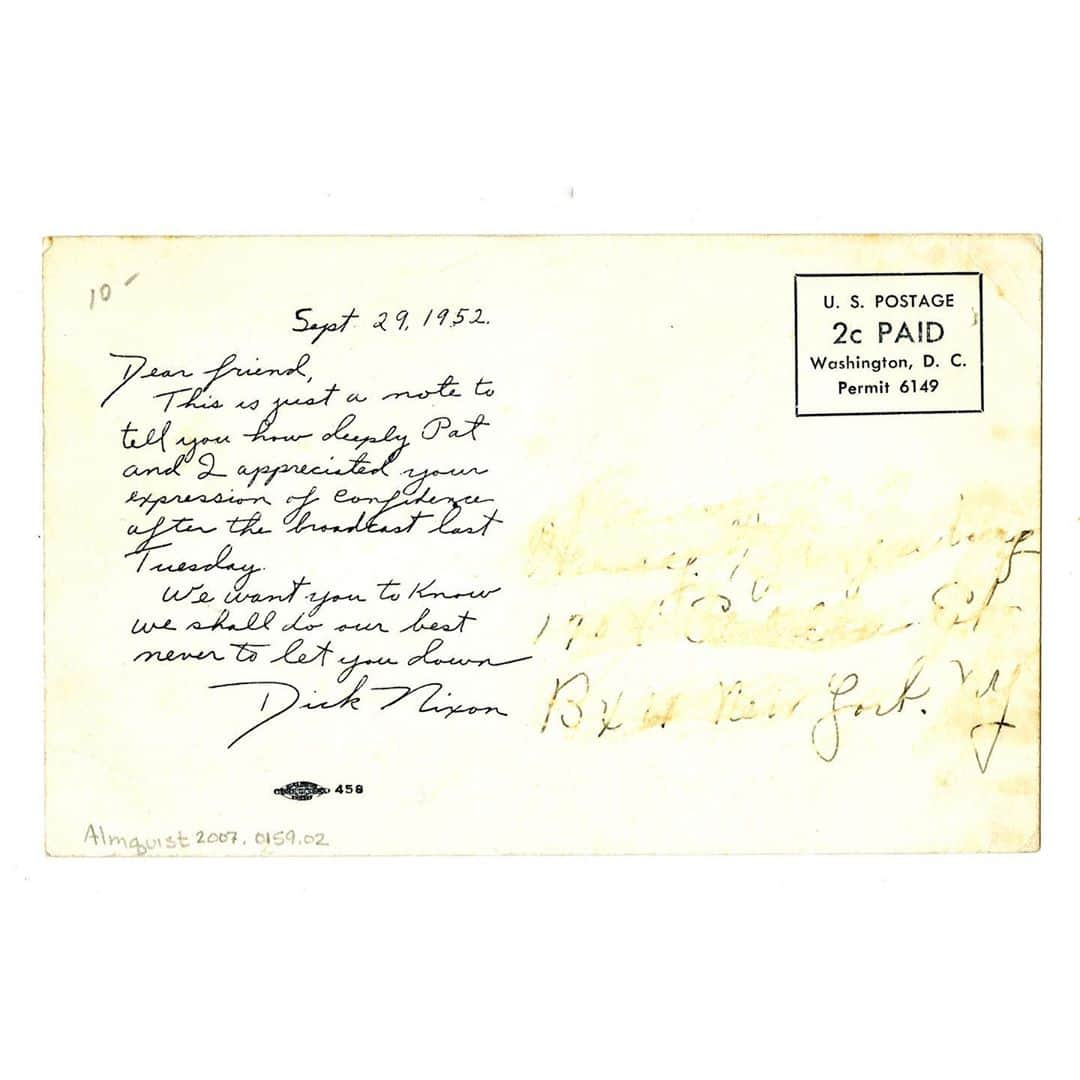 10-
Sept 29, 1952.
Dear friend,
This is just a note to
tell you how deeply Pat
and I appreciated your
expression of confidence
after the broadcast last
Tuesday.
We want you to know
we shall do our best
never to let you down
Dick Nixon
458
Almquist 2007.0159.02
U. S. POSTAGE
2c PAID
Washington, D. C.
Permit 6149
New York. NY